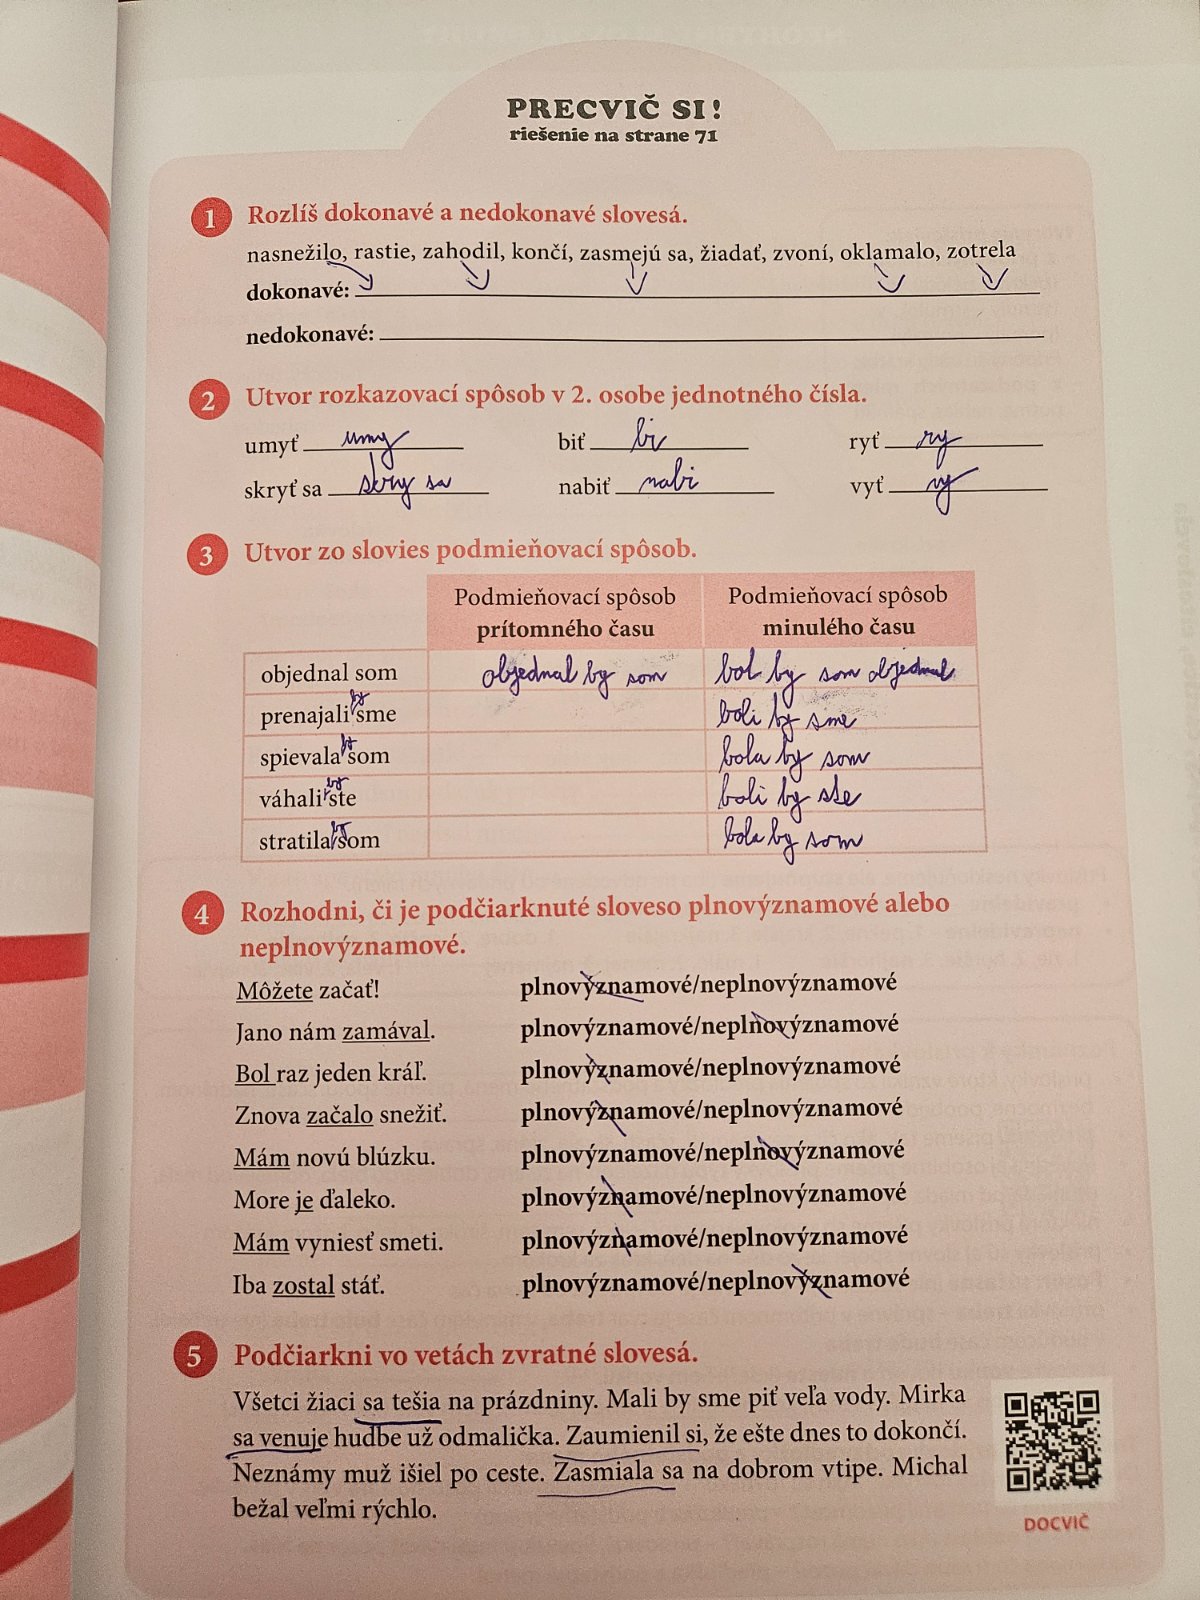 PRECVIČ SI!
riešenie na strane 71
1 Rozlíš dokonavé a nedokonavé slovesá.
nasnežilo, rastie, zahodil, končí, zasmejú sa, žiadať, zvoní, oklamalo, zotrela
dokonavé:
nedokonavé:
2 Utvor rozkazovací spôsob v 2. osobe jednotného čísla.
umyť umy biť bi ryť ry
skryť sa skry sa nabiť nabi vyť vy
3 Utvor zo slovies podmieňovací spôsob.
Podmieňovací spôsob prítomného času Podmieňovací spôsob minulého času
objednal som objednal by som bol by som objednal
prenajali by sme boli by sme
spievala by som bola by som
váhali by ste boli by ste
stratila by som bola by som
4 Rozhodni, či je podčiarknuté sloveso plnovýznamové alebo
neplnovýznamové.
Môžete začať! plnovýznamové/neplnovýznamové
Jano nám zamával. plnovýznamové/neplnovýznamové
Bol raz jeden kráľ. plnovýznamové/neplnovýznamové
Znova začalo snežiť. plnovýznamové/neplnovýznamové
Mám novú blúzku. plnovýznamové/neplnovýznamové
More je ďaleko. plnovýznamové/neplnovýznamové
Mám vyniesť smeti. plnovýznamové/neplnovýznamové
Iba zostal stáť. plnovýznamové/neplnovýznamové
5 Podčiarkni vo vetách zvratné slovesá.
Všetci žiaci sa tešia na prázdniny. Mali by sme piť veľa vody. Mirka
sa venuje hudbe už odmalička. Zaumienil si, že ešte dnes to dokončí.
Neznámy muž išiel po ceste. Zasmiala sa na dobrom vtipe. Michal
bežal veľmi rýchlo.
DOCVIČ